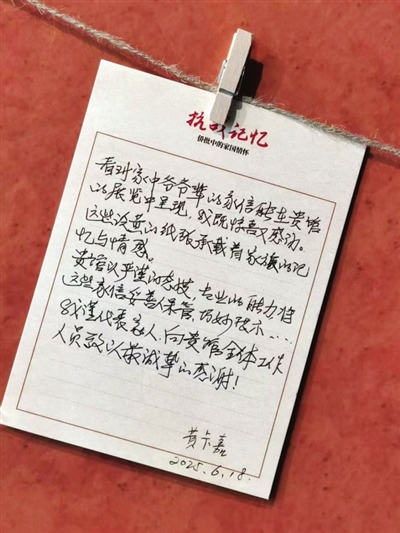 抗战记忆
侨批中的家国情怀
看到家中爷爷辈的家信能在贵馆
的展览中呈现，我既惊喜又感动。
这些泛黄的纸张承载着家族的记
忆与情感。
贵馆以严谨的态度，专业的能力将
这些家信妥善保管、巧妙展示……
我谨代表家人，向贵馆全体工作
人员致以最诚挚的感谢！
黄卡嘉
2025.6.18.